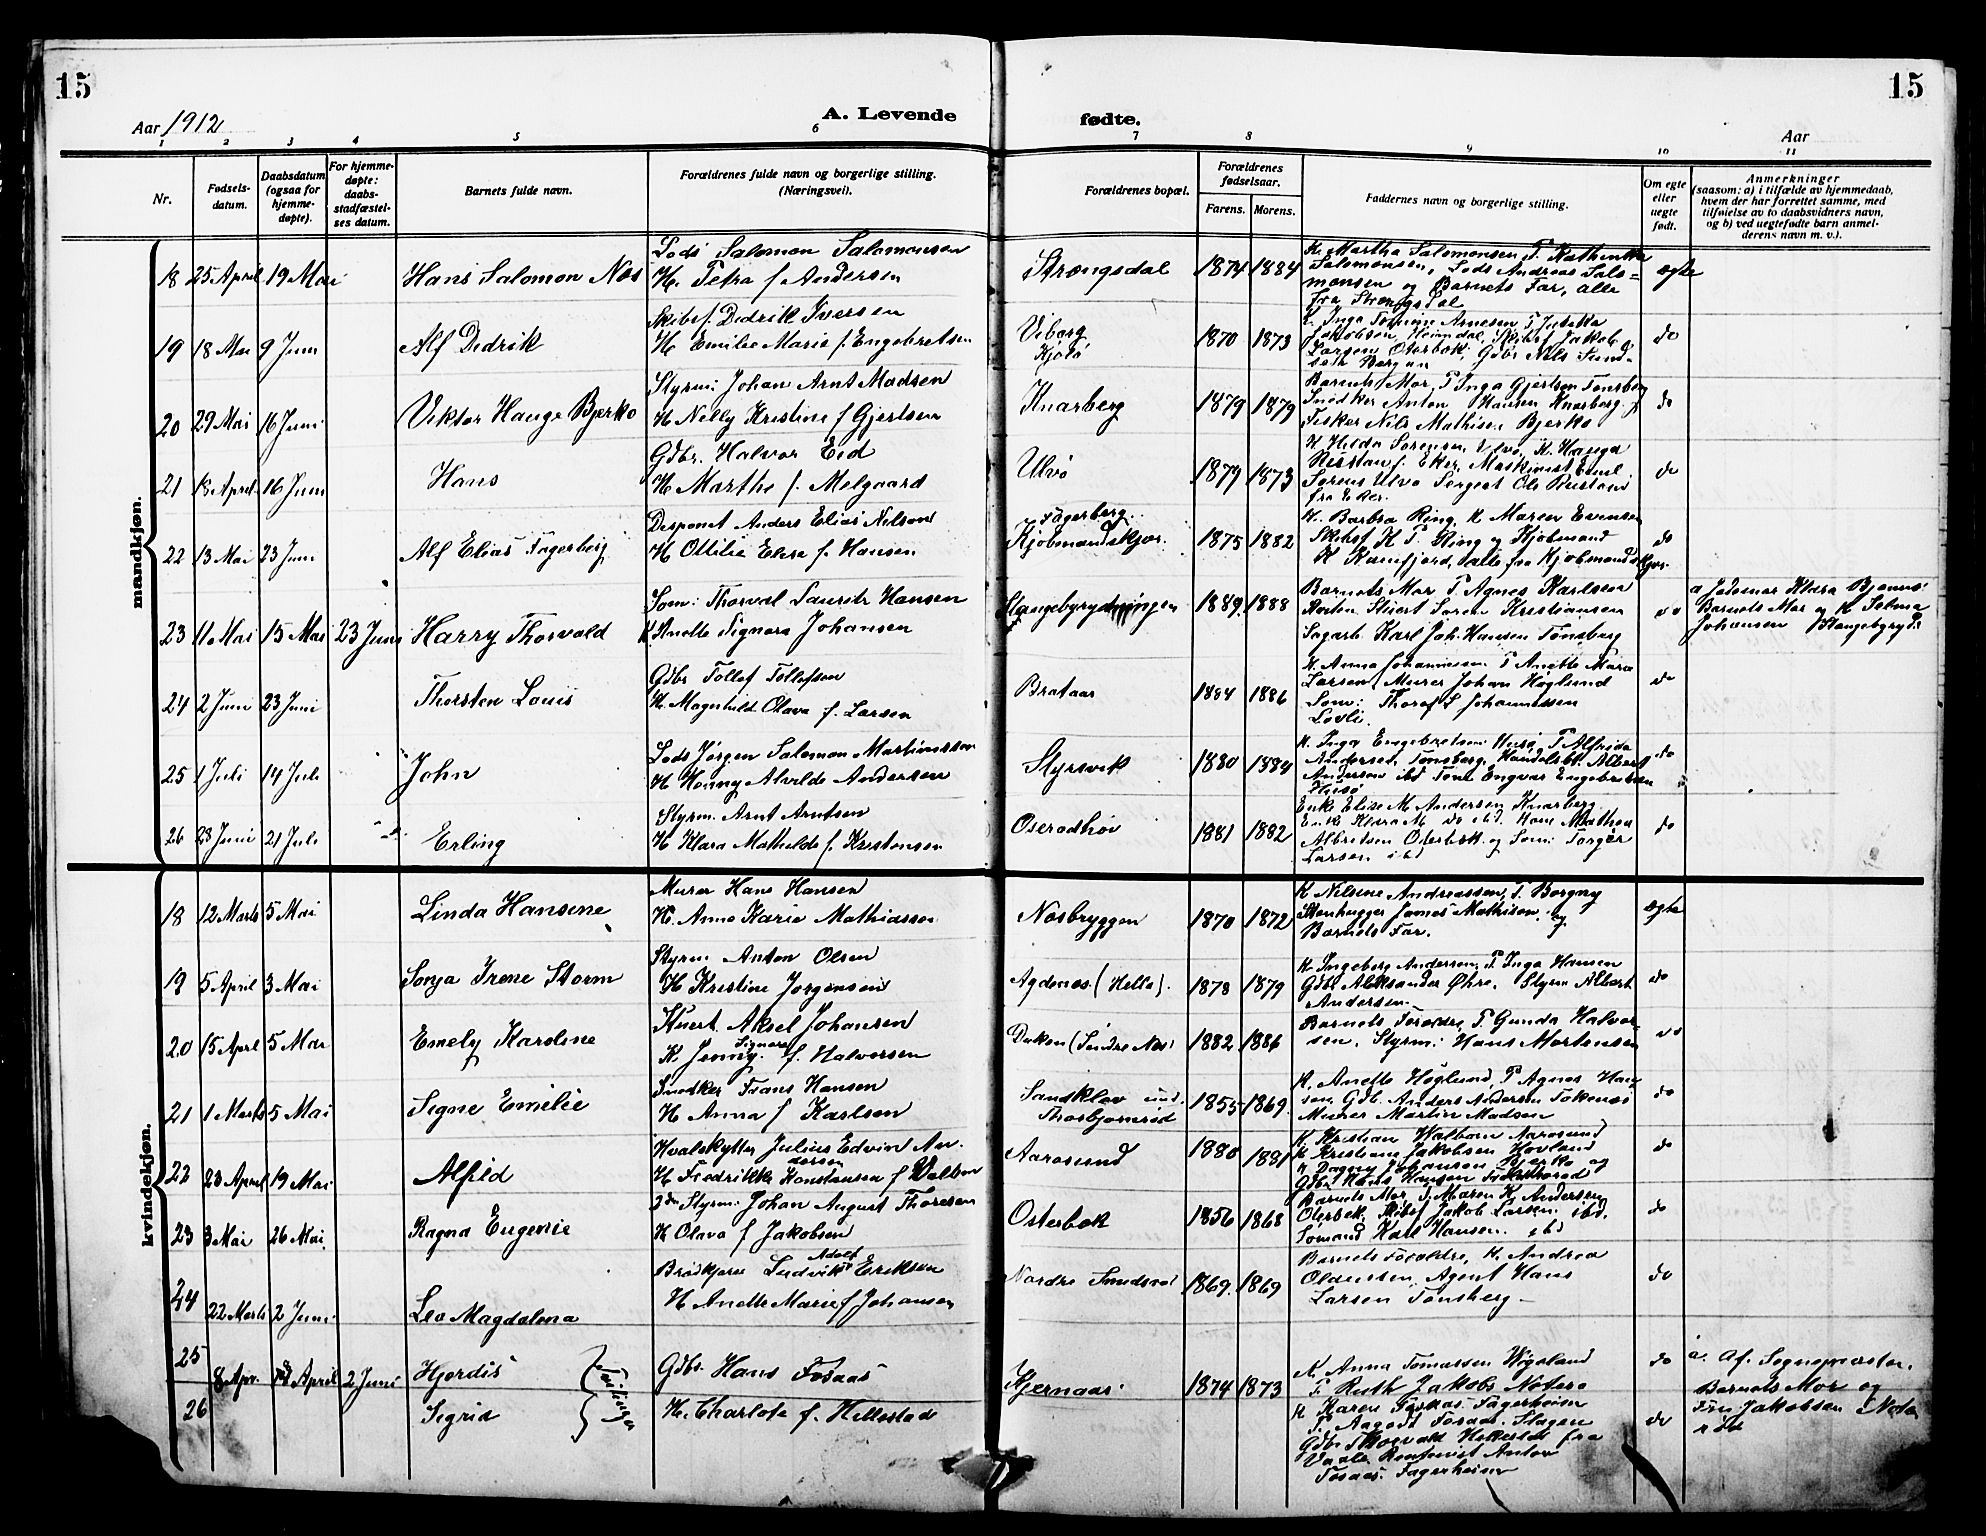 15
15
Aar 1912
A. Levende
fødte.
Aar
1 2 3 4 5 6 7 8 9 10 11
Nr.
Fødsels-
datum.
Daabsdatum
(ogsaa for
hjemme-
døpte).
For hjemme-
døpte:
daabs-
stadfæstel-
ses datum.
Barnets fulde navn.
Forældrenes fulde navn og borgerlige stilling.
(Næringsvei).
Forældrenes bopæl.
Forældrenes
fødselsaar.
Farens. Morens.
Faddernes navn og borgerlige stilling.
Om egte
eller
uegte
født.
Anmerkninger
(saasom: a) i tilfælde av hjemmedaab,
hvem der har forrettet samme, med
tilføielse av to daabsvidners navn,
og b) ved uegtefødte barn anmel-
derens navn m. v.).
mandkjøn.
18 25 April 19 Mai Hans Salomon Næs
Lods Salomon Salomonsen
H. Petra f Andersen
Strængsdal 1874 1884
K. Martha Salomonsen, P. Kathinka
Salomonsen, Lods Andreas Salo-
monsen og Barnets Far, alle
fra Strengsdal
ægte
19 18 Mai 9 Juni Alf Didrik
Skibsf. Didrik Iversen
H Emilie Marie f. Engebretsen
Viborg
Kjøiø
1870 1873
Larsen, Oterbæk, Gdbr Nils Sund-
seth Bergan
do
20 29 Mai 16 Juni Viktor Hauge Bjerkø
Styrm: Johan Arnt Madsen
H Nelly Kristine f Gjertsen
Knarberg 1879 1879
Barnets Mor, P Inga Gjertsen Tønsberg
Snedker Anton Hansen Knarberg
Fisker Nils Mathisen Bjerkø
do
21 18 April 16 Juni Hans
Gdbr. Halvor Eid
H Marthe f. Melgaard
Ulvø 1877 1873
H Hilda Sørensen, Ulvø, K. Hanga
Ristan f. Eker, Maskinist Emil
Sørens Ulvø Sergent Ole Ristan
fra Eker.
do
22 13 Mai 23 Juni Alf Elias Fagerberg
Disponet Anders Elias Nilsen
H Ottilie Elise f. Hansen
Fagerberg
Kjøbmandskjær. 1875 1882
K. Barbra Ring, K Maren Evensen
Skibsf K P Ring og Kjøbmand
K Ramfjord, alle fra Kjøbmandskjær
do
23 11 Mai 15 Mai 23 Juni Harry Thorvald
Søm: Thorval Laurits Hansen
H Anette Signora Johansen
Stangebyrydningen 1889. 1888
Barnets Mor P. Agnes Karlsen
Stuert Søren Kristiansen
Sagarb. Karl Joh. Hansen Tønsberg
do
a Jodemor Klara Bjønnes
Barnets Mor og K Selma
Johansen Stangebyryd.
24 2 Juni 23 Juni Thorsten Louis
Gdbr Tollef Tollefsen
H. Magnhild Olava f. Larsen
Brataas 1884 1886
K. Anna Johannessen P Anette Marie
Larsen, Murer Johan Høglund
Søm: Thoralf L Johannessen
Løvli.
do
25 1 Juli 14 Juli John
Lods Jørgen Salomon Martinussen
H Honny Alvilde Andersen
Styrsvik 1880 1884
K. Inga Engebretsen Husø, P Alfrida
Andersen, Tønsberg, Handelsbt. Albert
Andersen ibd Tøm Ingvar Engebretsen
Husø
do
26 28 Juni 21 Juli Erling
Styrm. Arnt Arntsen
H Klara Mathilde f. Kristensen
Oserødhøi 1881 1882
Enke Elise M. Andersen Knarberg
Enke Klara M. do ibd. Hans Mathea
Albretsen Oterbæk og Søm: Torger
Larsen ibd
do
kvindekjøn.
18 12 Marts 5 Mai Linda Hansine
Murer Hans Hansen
H. Anne Karie Mathiassen
Næsbryggen 1870 1872
K Nilsine Andreassen, P. Borgny
Stenhugger James Mathisen og
Barnets Far.
ægte
19 5 April 3 Mai Sonja Irene Storm
Styrm Anton Olsen
H Kristine Jørgensen
Agdenæs (Helle). 1878 1879
K Ingeborg Andersen, P. Inga Hansen
Gdb. Aleksander Øhre. Styrm Albert
Andersen.
do
20 15 April 5 Mai Emely Karoline
Stuert Aksel Johansen
K. Jenny Signora f. Halvorsen
Dukon (Søndre Næs) 1882 1886
Barnets Forældre, P. Gunda Halvor-
sen, Styrm: Hans Mortensen
do
21 1 Marts 5 Mai Signe Emilie
Snedker Frans Hansen
H Anna f Karlsen
Sandkløv und.
Thorbjørnsrød 1855 1869.
K. Anette Høglund, P Agnes Han-
sen, Gdb. Anders Andersen Tokenæs
Murer Martin Madsen
do
22 23 April 19 Mai Alfild
Hvalskytter Julius Edvin An-
dersen
H Fredrikke Konstanse f Walbom
Aarøsund 1880 1881
K Kristian Walbom Aarøsund
K Kristiane Jakobsen Hovland
K Dagny Johansen Bjerkø og
Gdb. Hans Hansen
do
23 3 Mai 26 Mai Ragna Eugenie
2den Styrm: Johan August Thoresen
H Olava f Jakobsen
Osterbæk 1856 1868
Barnets Mor, P. Maren K Andersen
Oterbæk, Skibsf Jakob Larsen ibd.
Sømand Karl Hansen ibd
do
24 22 Marts 2 Juni Lea Magdalena
Brødkjører Ludvik Adolf Eriksen
H Anette Marie f Johansen
Nordre Smidsrød 1869. 1869
Barnets Forældre, K. Andrea
Oldensen, Agent Hans
Larsen Tønsberg.
do
25 8 Apr. 18 April 2 Juni Hjørdis
26 Sigrid
Tvilinger
Gdbr. Hans Fosaas
H. Charlote f. Hillestad
Kjernaas 1874 1873
K. Anna Tomassen Wøgeland
P. Ruth Jakobs. Nøterø
K Karen Fosaas. Fagerheim
P. Aagodt Fosaas. Slagen
Gdbr. Thorvald Hillestad fra
Vaale. Rentenist Anton
Fosaas. Fagerheim
do
do
a. Af. Sognepræsten.
Barnets Mor og
Fru Jakobsen Nøte-
rø